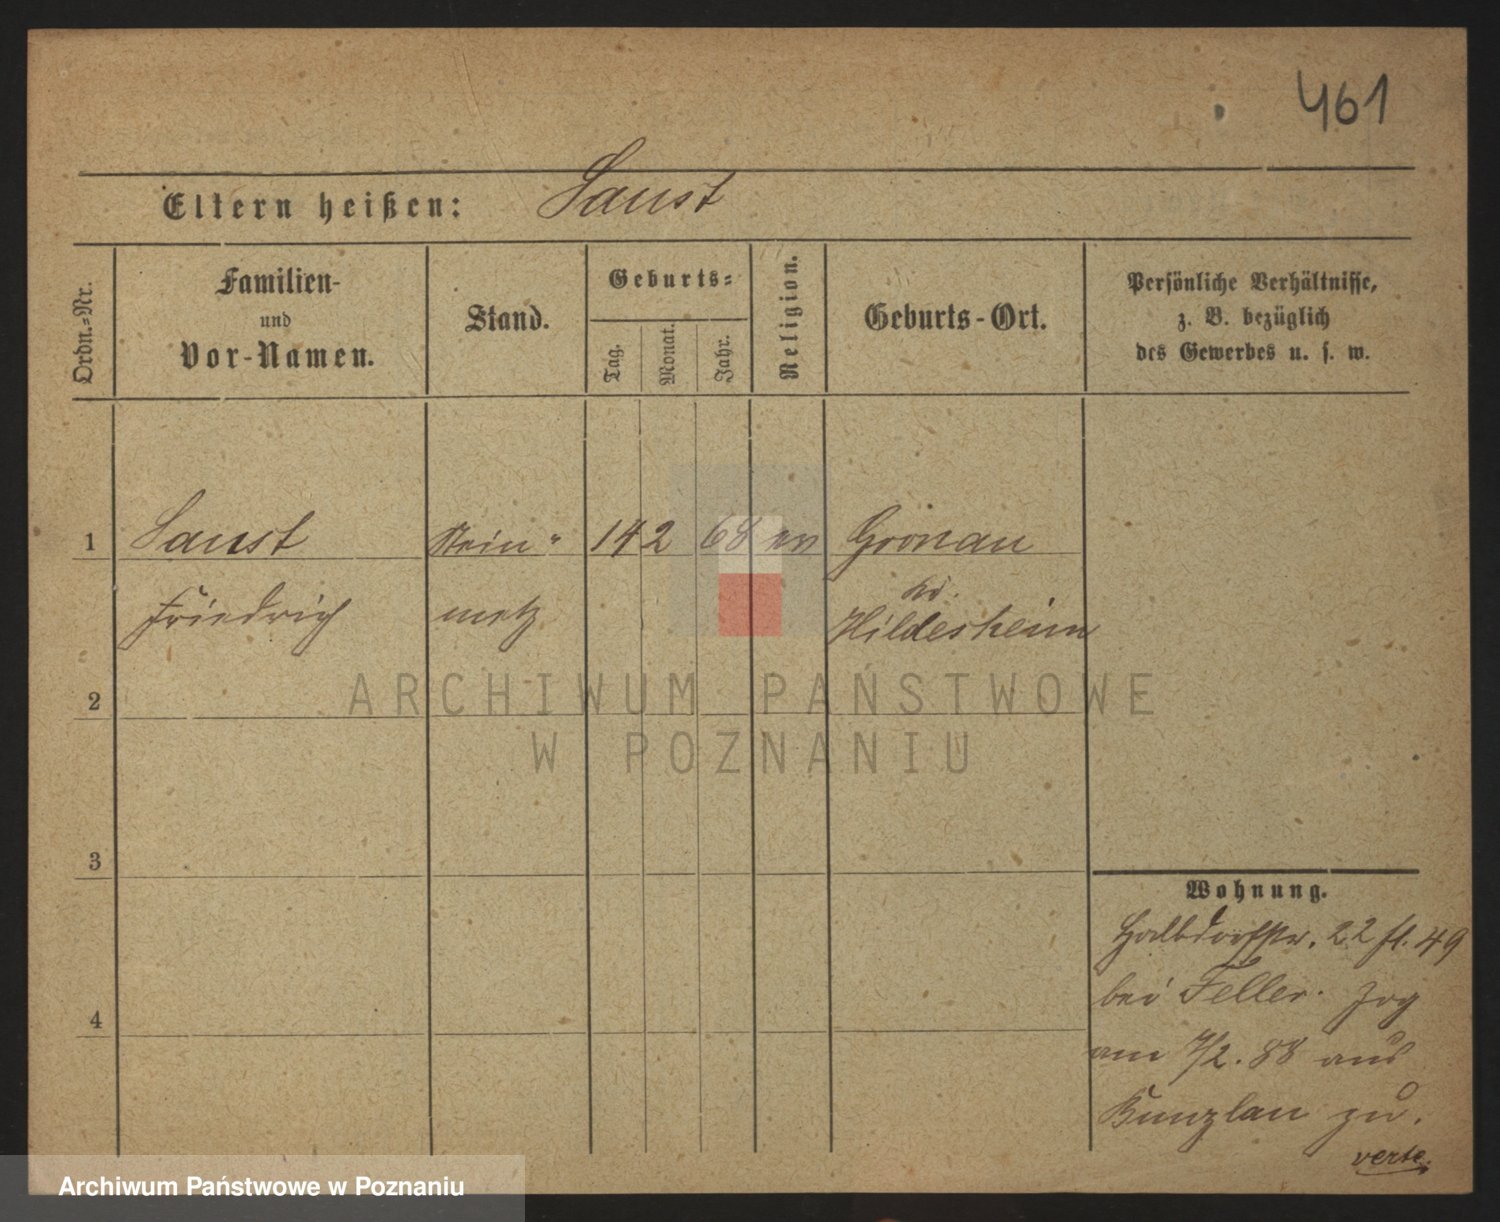 461
Eltern heißen: Saust
Ordn.-Nr.
Familien-
und
Vor-Namen.
Stand.
Geburts-
Tag.
Monat.
Jahr.
Religion.
Geburts-Ort.
Persönliche Verhältnisse,
z. B. bezüglich
des Gewerbes u. s. w.
1 Saust Stein- 14 2 68 ev Gronau
Friedrich metz Hildesheim
2
3
4
ARCHIWUM PAŃSTWOWE
W POZNANIU
Wohnung.
Halbdorfstr. 22 49
bei Feller. Zog
am 7/2. 88 aus
Bunzlau zu.
verte.
Archiwum Państwowe w Poznaniu